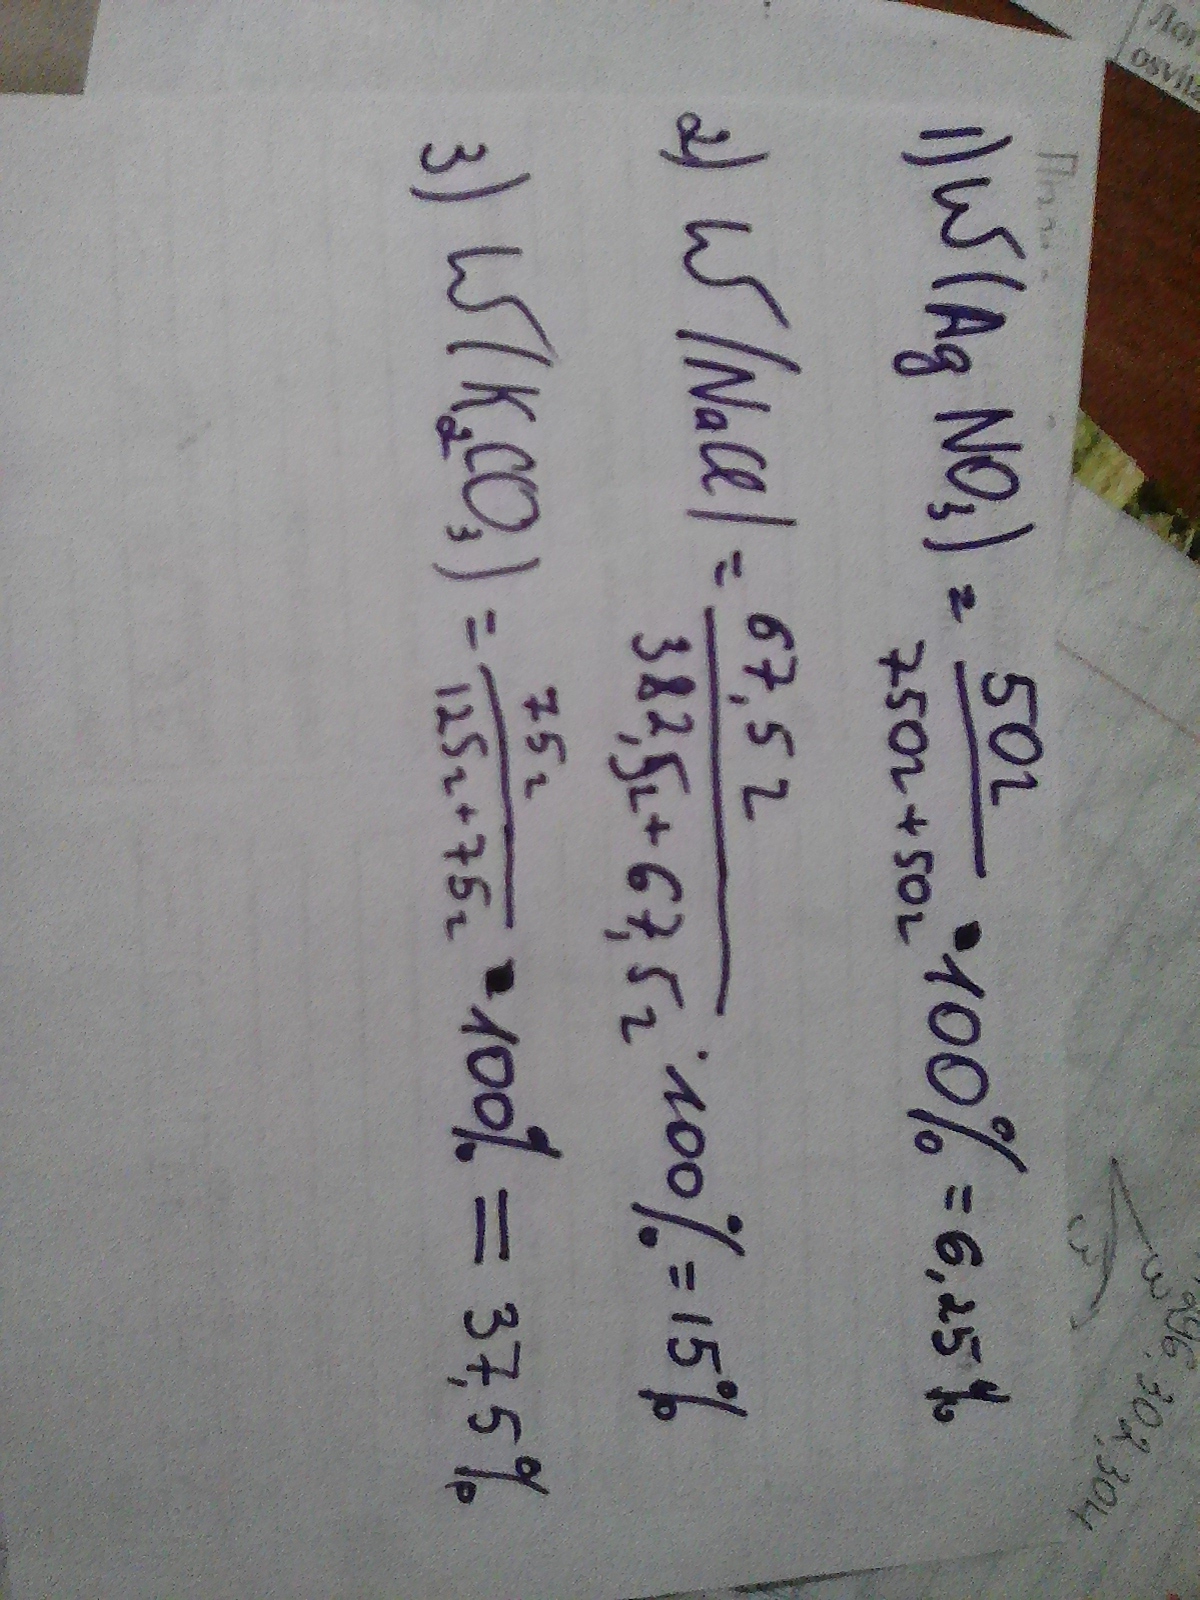 1) W(AgNO₃) = 50г / 750г + 50г · 100% = 6,25%
2) W(NaCl) = 67,5г / 382,5г + 67,5г · 100% = 15%
3) W(K₂CO₃) = 75г / 125г + 75г · 100% = 37,5%
osvita
302,304